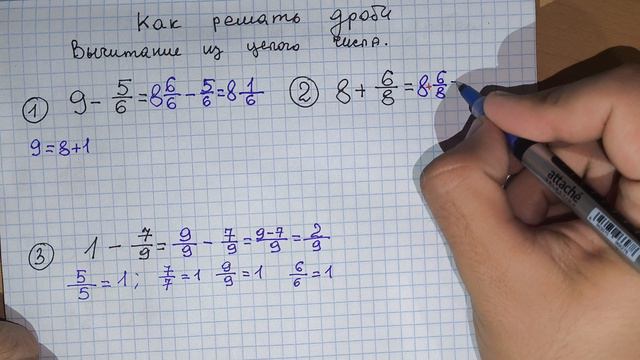 Как решать дроби
Вычитание из целого числа.
① 9 - 5/6 = 8 6/6 - 5/6 = 8 1/6
② 8 + 6/8 = 8 + 6/8
9 = 8 + 1
③ 1 - 7/9 = 9/9 - 7/9 = 9-7/9 = 2/9
5/5 = 1; 7/7 = 1 9/9 = 1 6/6 = 1
attaché